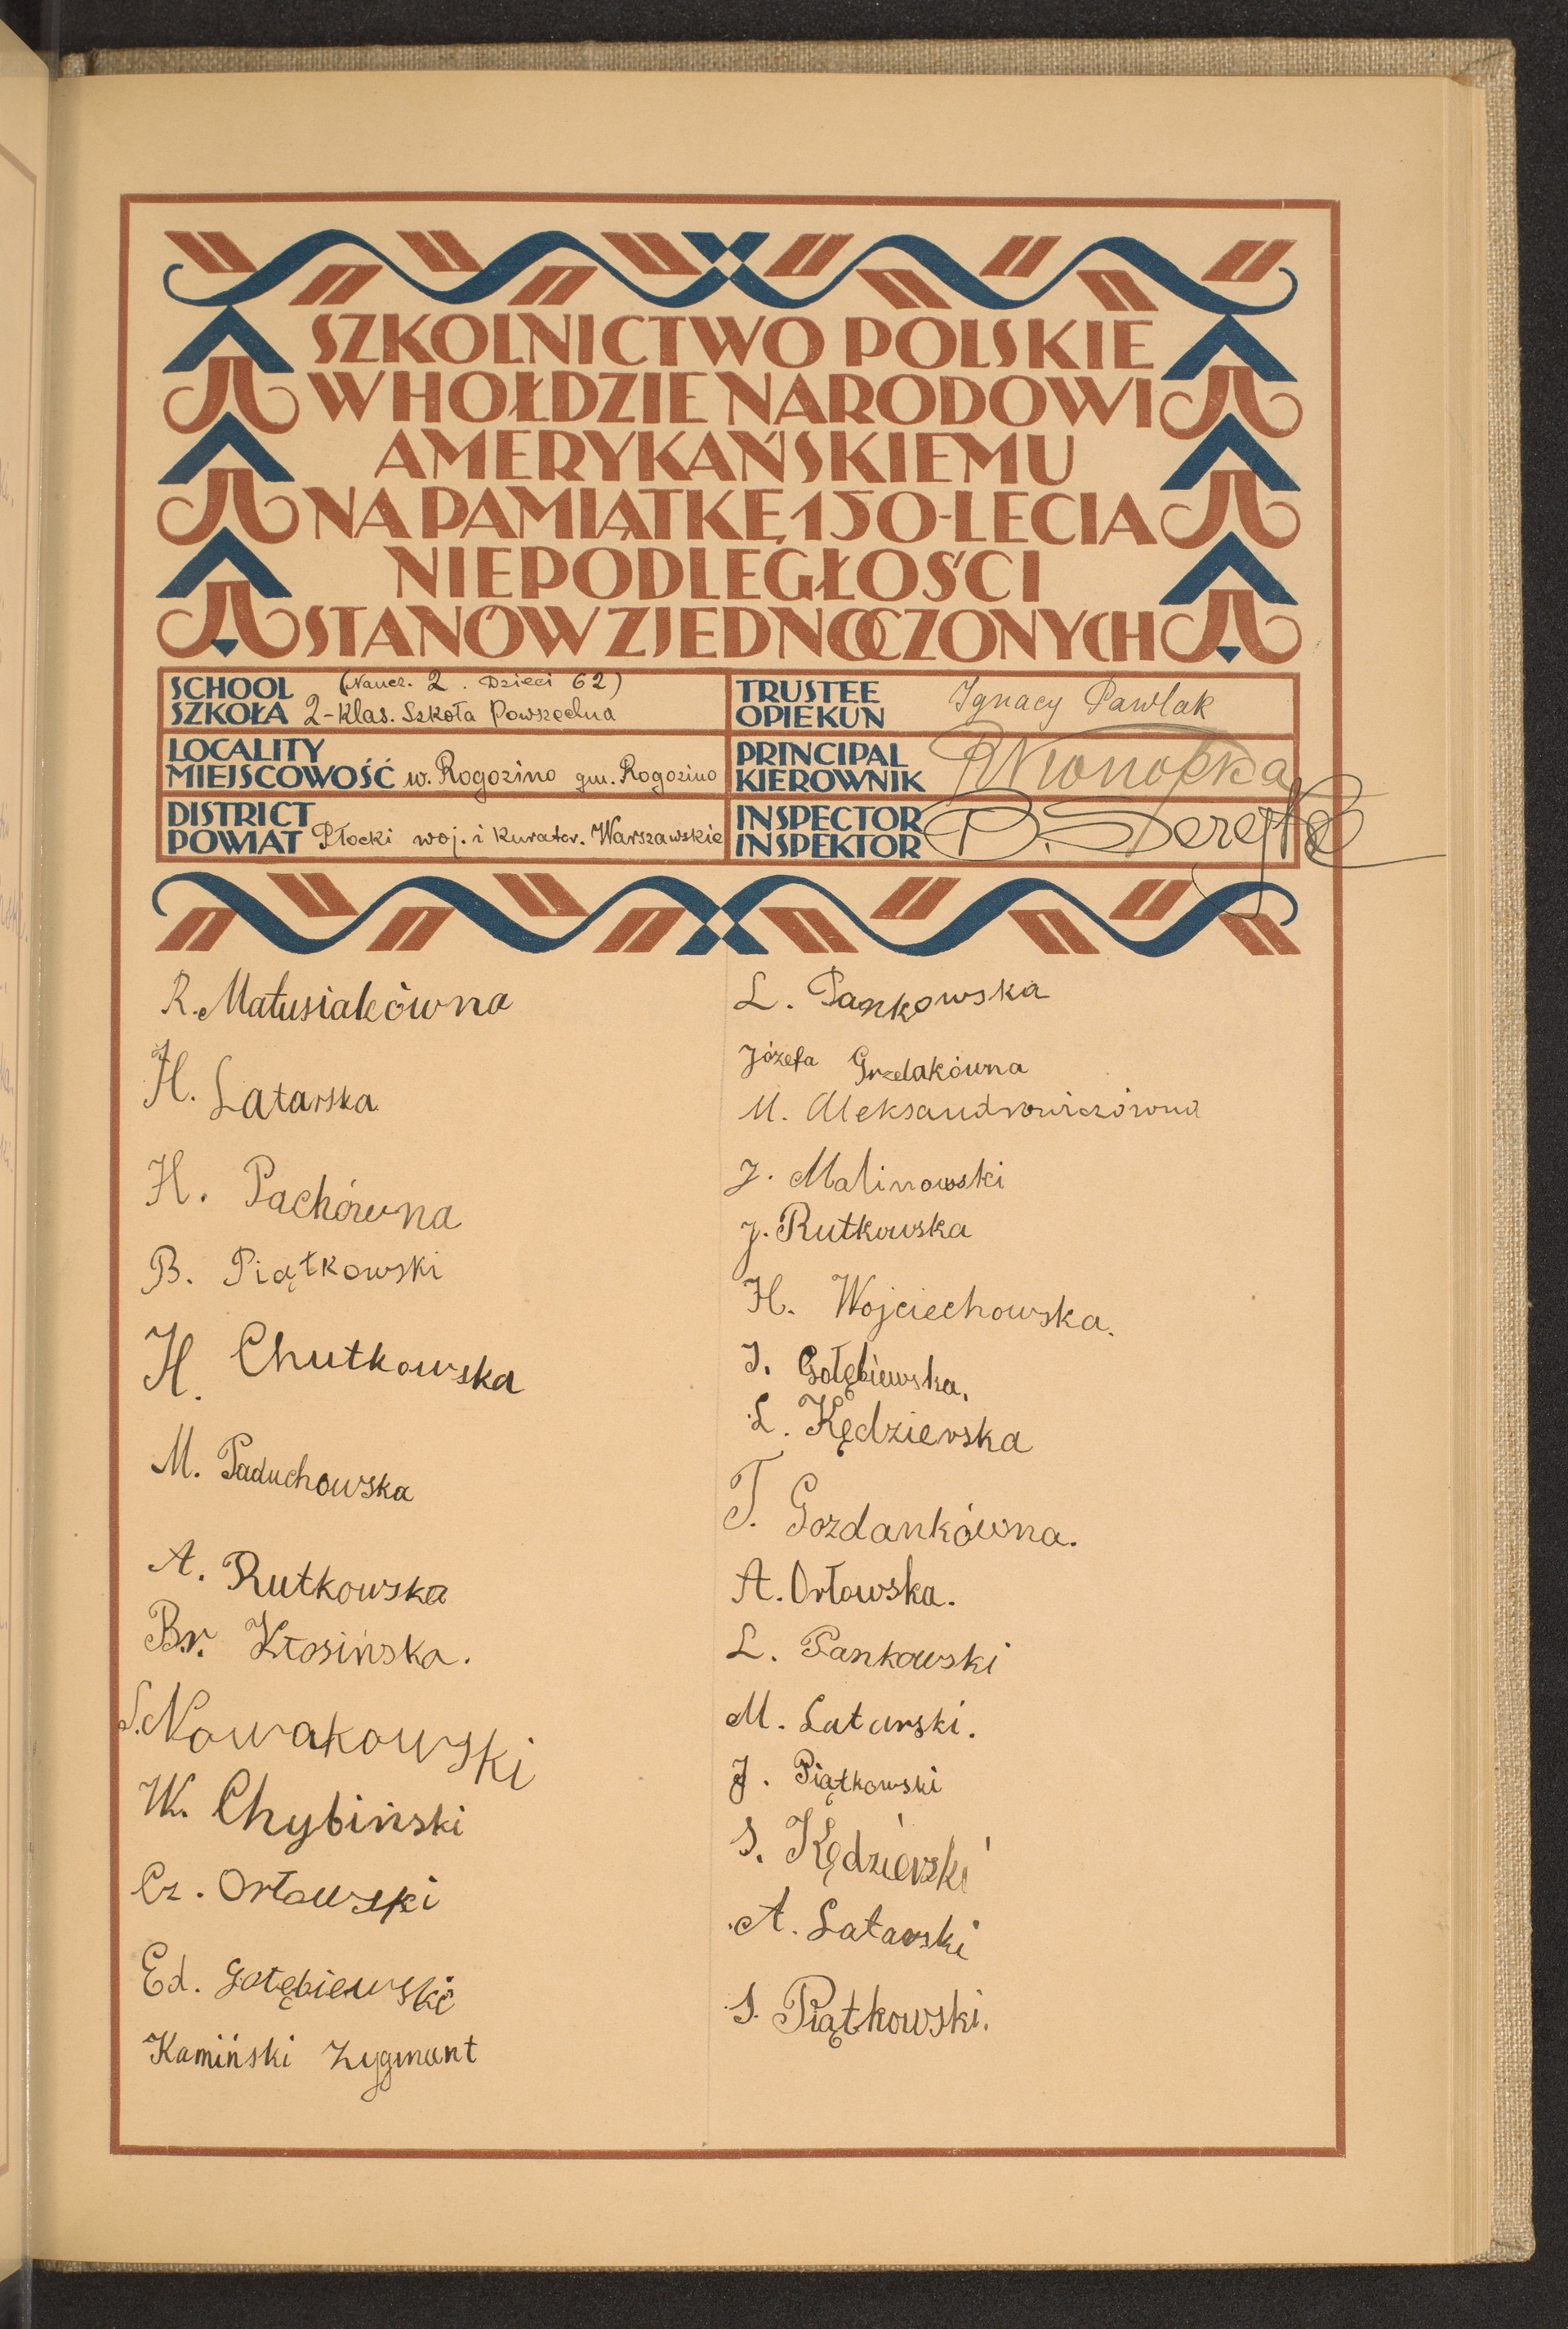 SZKOLNICTWO POLSKIE
W HOŁDZIE NARODOWI
AMERYKAŃSKIEMU
NA PAMIĄTKĘ 150-LECIA
NIEPODLEGŁOŚCI
STANÓW ZJEDNOCZONYCH
SCHOOL (Naucz. 2. Dzieci 62)
SZKOŁA 2-klas. Szkoła Powszechna
TRUSTEE
OPIEKUN Ignacy Pawlak
LOCALITY
MIEJSCOWOŚĆ w. Rogozino gm. Rogozino
PRINCIPAL
KIEROWNIK Konopka
DISTRICT
POWIAT Płocki woj. i Kurator. Warszawskie
INSPECTOR
INSPEKTOR
R. Matusiakówna
H. Latarska
H. Pachówna
B. Piątkowski
H. Chutkowska
M. Paduchowska
A. Rutkowska
Br. Kłosińska.
S. Nowakowski
W. Chybiński
Cz. Orłowski
Ed. Gołębiewski
Kamiński Zygmunt
L. Pankowska
Józefa Grzelakówna
M. Aleksandrowiczówna
J. Malinowski
J. Rutkowska
H. Wojciechowska.
J. Gołębiewska.
L. Kędzierska
T. Gozdankówna.
A. Orłowska.
L. Pankowski
M. Latarski.
J. Piątkowski
S. Kędzierski
A. Latarski
S. Piątkowski.